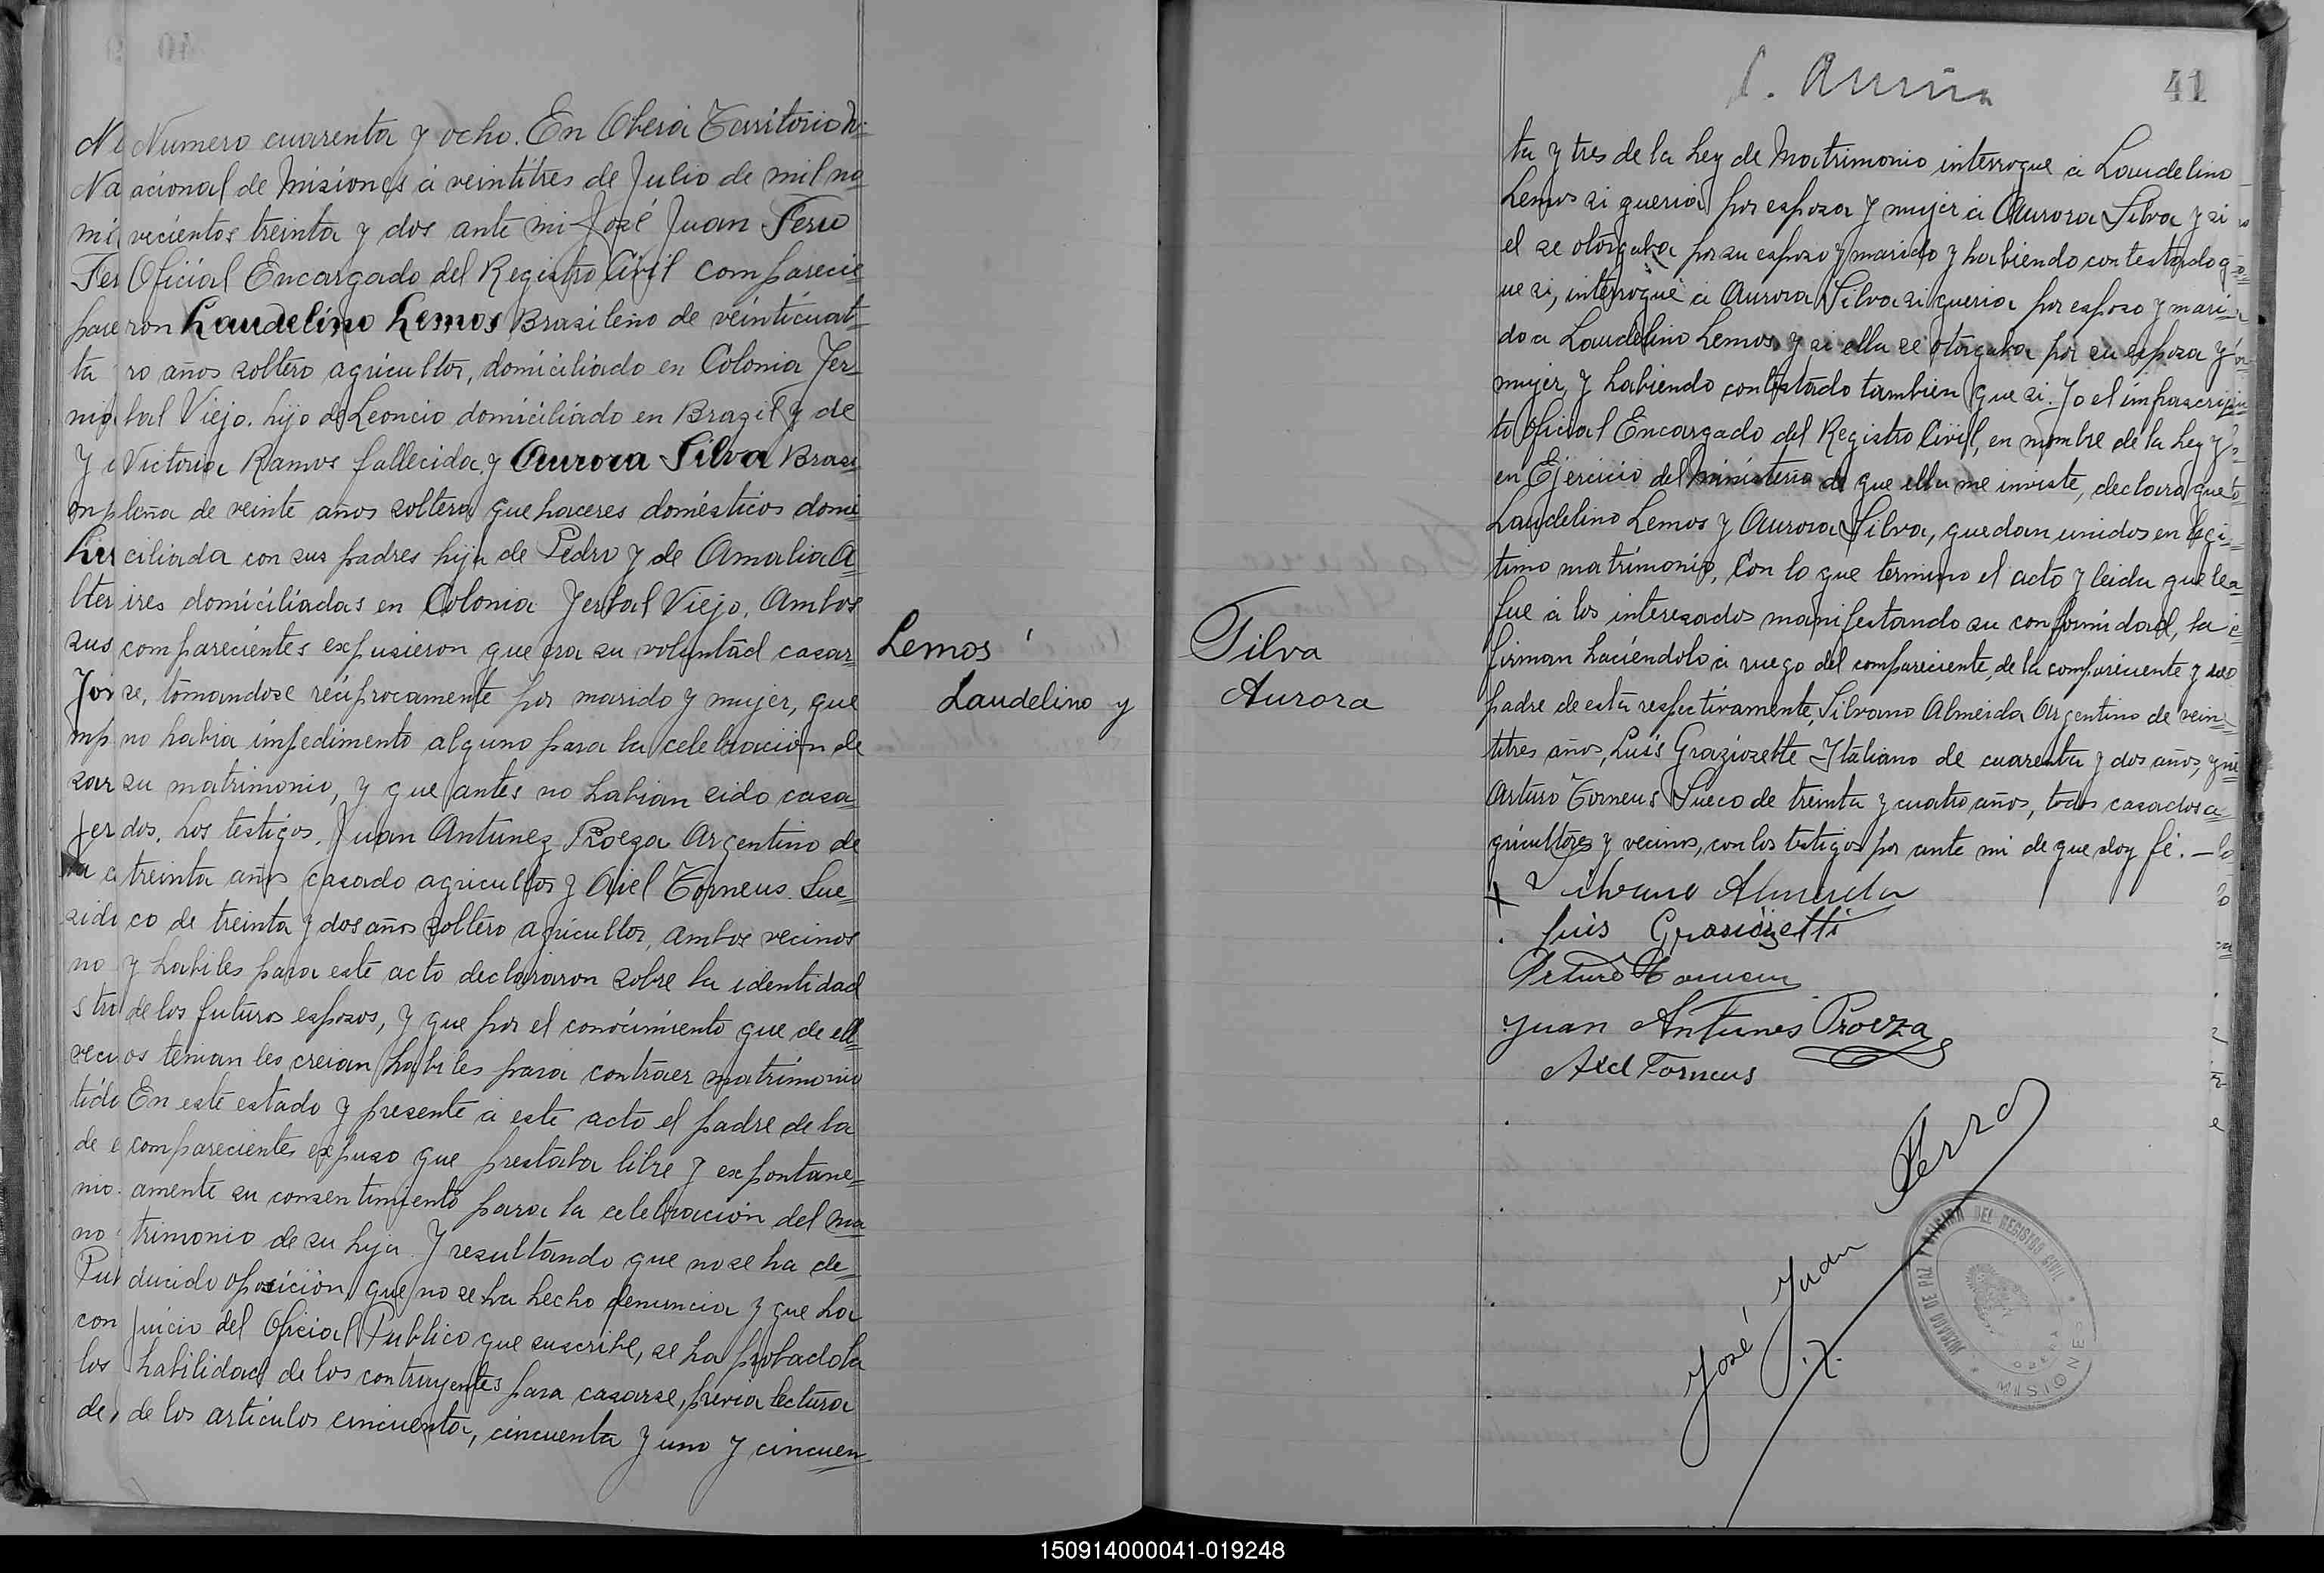 Numero cuarenta y ocho. En Oberá Territorio N-
acional de Misiones á veintitres de Julio de mil no
vecientos treinta y dos ante mi José Juan Ferro
Oficial Encargado del Registro Civil comparecie
ron Laudelino Lemos Brasileño de veinticuat-
ro años soltero agricultor, domiciliado en Colonia Yer-
bal Viejo. hijo de Leoncio domiciliado en Brazil y de
Victoria Ramos fallecida, y Aurora Silva Brasi
leña de veinte años soltera quehaceres domésticos domi
ciliada con sus padres hija de Pedro y de Amalia A
ires domiciliadas en Colonia Yerbal Viejo. Ambos
comparecientes expusieron que era su voluntad casar-
se, tomandose reciprocamente por marido y mujer, que
no habia impedimento alguno para la celebración de
su matrimonio, y que antes no habian sido casa
dos. Los testigos. Juan Antunez Proeza Argentino de
treinta años casado agricultor y Axel Torneus. Sue
co de treinta y dos años soltero agricultor, ambos vecinos
y habiles para este acto declararon sobre la identidad
de los futuros esposos, y que por el conocimiento que de ell
os tenian les creian habiles para contraer matrimonio
En este estado y presente á este acto el padre de la
compareciente expuso que prestaba libre y espontane-
amente su consentimiento para la celebración del ma
trimonio de su hija. Y resultando que no se ha de-
ducido oposición, que no se ha hecho denuncia y que ha
juicio del Oficial Publico que suscribe, se ha probado la
habilidad de los contrayentes para casarse, previa lectura
de los articulos cincuenta, cincuenta y uno y cincuen
Lemos
Laudelino y
Silva
Aurora
41
ta y tres de la Ley de Matrimonio interrogue á Laudelino
Lemos si queria por esposa y mujer á Aurora Silva y si
el se otorgaba por su esposo y marido y habiendo contestado q-
ue si, interrogué á Aurora Silva si queria por esposo y mari-
do a Laudelino Lemos y si ella se otorgaba por su esposa y
mujer y habiendo contestado tambien que si. Yo el infrascrip
to Oficial Encargado del Registro Civil, en nombre de la Ley y
en Ejercicio del ministerio de que ella me inviste, declara que
Laudelino Lemos y Aurora Silva, quedan unidos en legi-
timo matrimonio, Con lo que termino el acto y leida que les
fue á los interesados manifestando su conformidad, la
firman haciéndolo á ruego del compareciente, de la compareciente y
padre de esta respectivamente, Silvano Almeida Argentino de vein-
titres años, Luis Graziosette Italiano de cuarenta y dos años, y
Arturo Torneus Sueco de treinta y cuatro años, todos casados a-
gricultores y vecinos, con los testigos por ante mi de que doy fé. —
Silvano Almeida
Luis Grasiozetti
Arturo Torneus
Juan Antunes Proeza
Axel Torneus
José Juan Ferro
JUZGADO DE PAZ Y OFICINA DEL REGISTRO CIVIL
OBERA
MISIONES
150914000041-019248